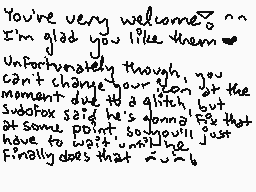 You're very welcome! ^ ^
I'm glad you like them ♥
Unfortunately though, you
can't change your icon at the
moment due to a glitch, but
Sudofox said he's gonna fix that
at some point, so you'll just
have to wait until he
finally does that